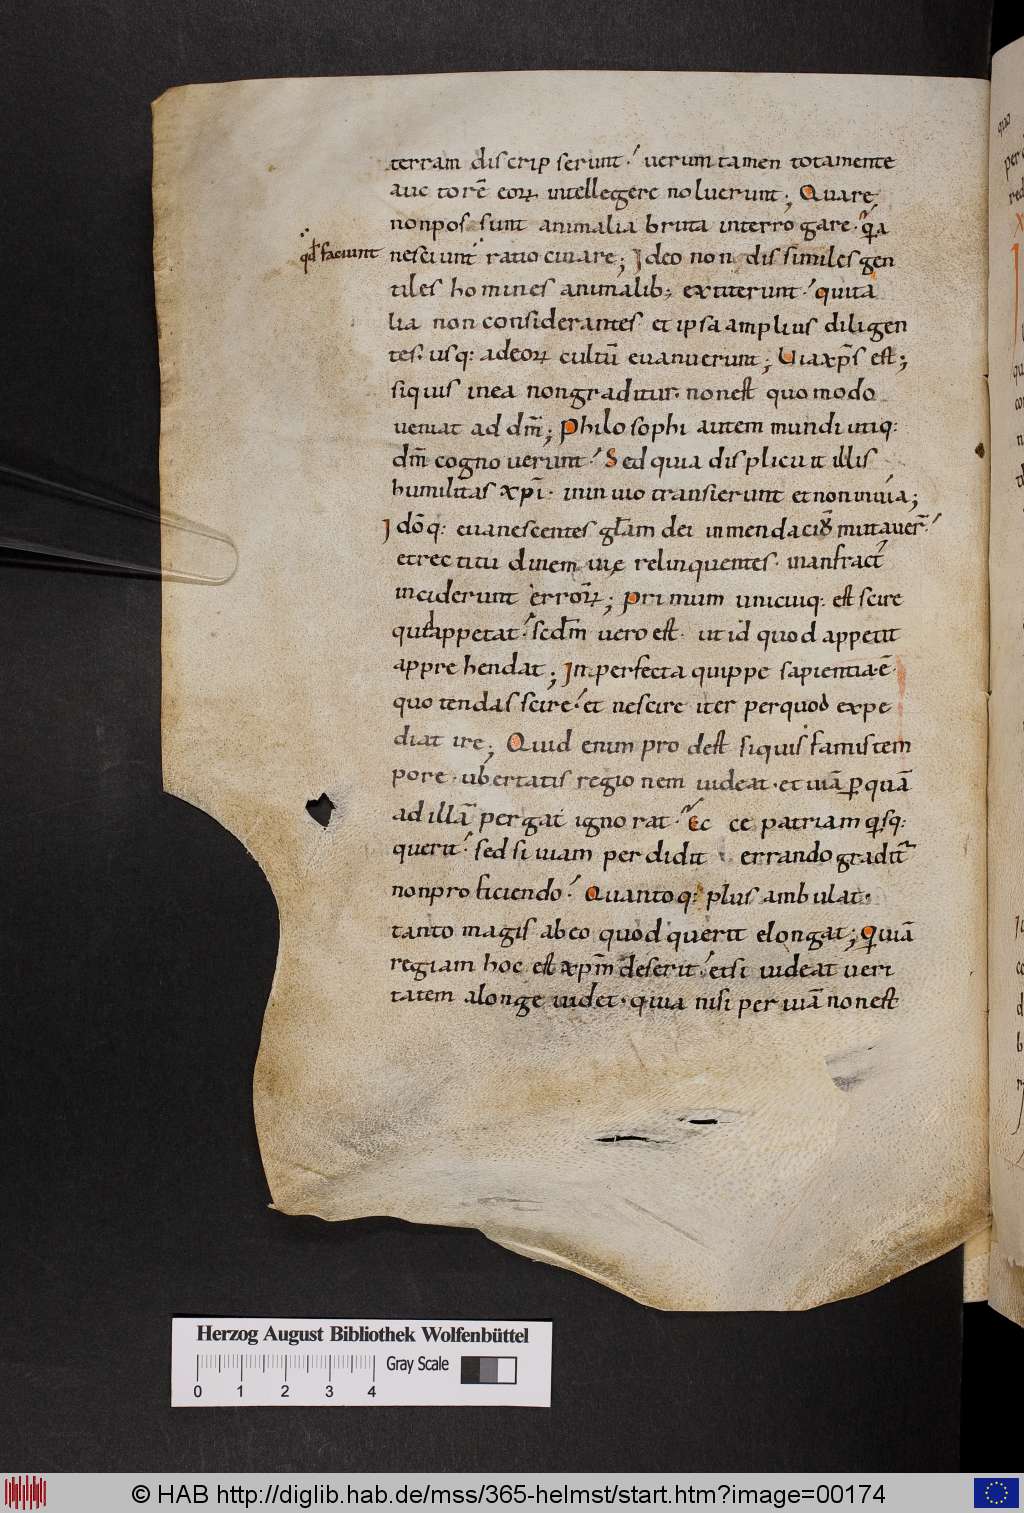 terram discripserunt. verum tamen tota mente
auctorē eoꝝ intellegere noluerunt; Quare
non possunt animalia bruta interrogare. qͥa
qđ faciunt
nesciunt ratiocinare; Ideo non dissimiles gen
tiles homines animalib; extiterunt. qui ta
lia non considerantes et ipsa amplius diligen
tes. usq: ad eoꝝ cultū evanuerunt; Via xp̄s est;
siquis in ea non graditur. non est quomodo
veniat ad dm̄; Philosophi autem mundi utiq:
dm̄ cognoverunt. Sed quia displicuit illis
humilitas xpī. in invio transierunt et non in via;
Idōq: evanescentes glam dei in mendaciū mutaver̄.
et rectitudinem vię relinquentes. in anfract
inciderunt erroꝝ; Primum unicuiq: est scire
quid appetat. scdm vero est. ut id quod appetit
apprehendat; Inperfecta quippe sapientia ē.
quo tendas scire. et nescire iter per quod expe
diat ire; Quid enim prodest siquis famis tem
pore. ubertatis regionem videat. et viā ꝑ quā
ad illā pergat ignorat. Ecce patriam qͥsq:
querit. sed si viam perdidit errando gradit̄
non proficiendo. Quantoq: plus ambulat.
tanto magis ab eo quod querit elongat; Quiā
regiam hoc est xpm̄ deserit. etsi videat veri
tatem a longe videt. quia nisi per viā non est
Herzog August Bibliothek Wolfenbüttel
Gray Scale
0 1 2 3 4
© HAB http://diglib.hab.de/mss/365-helmst/start.htm?image=00174